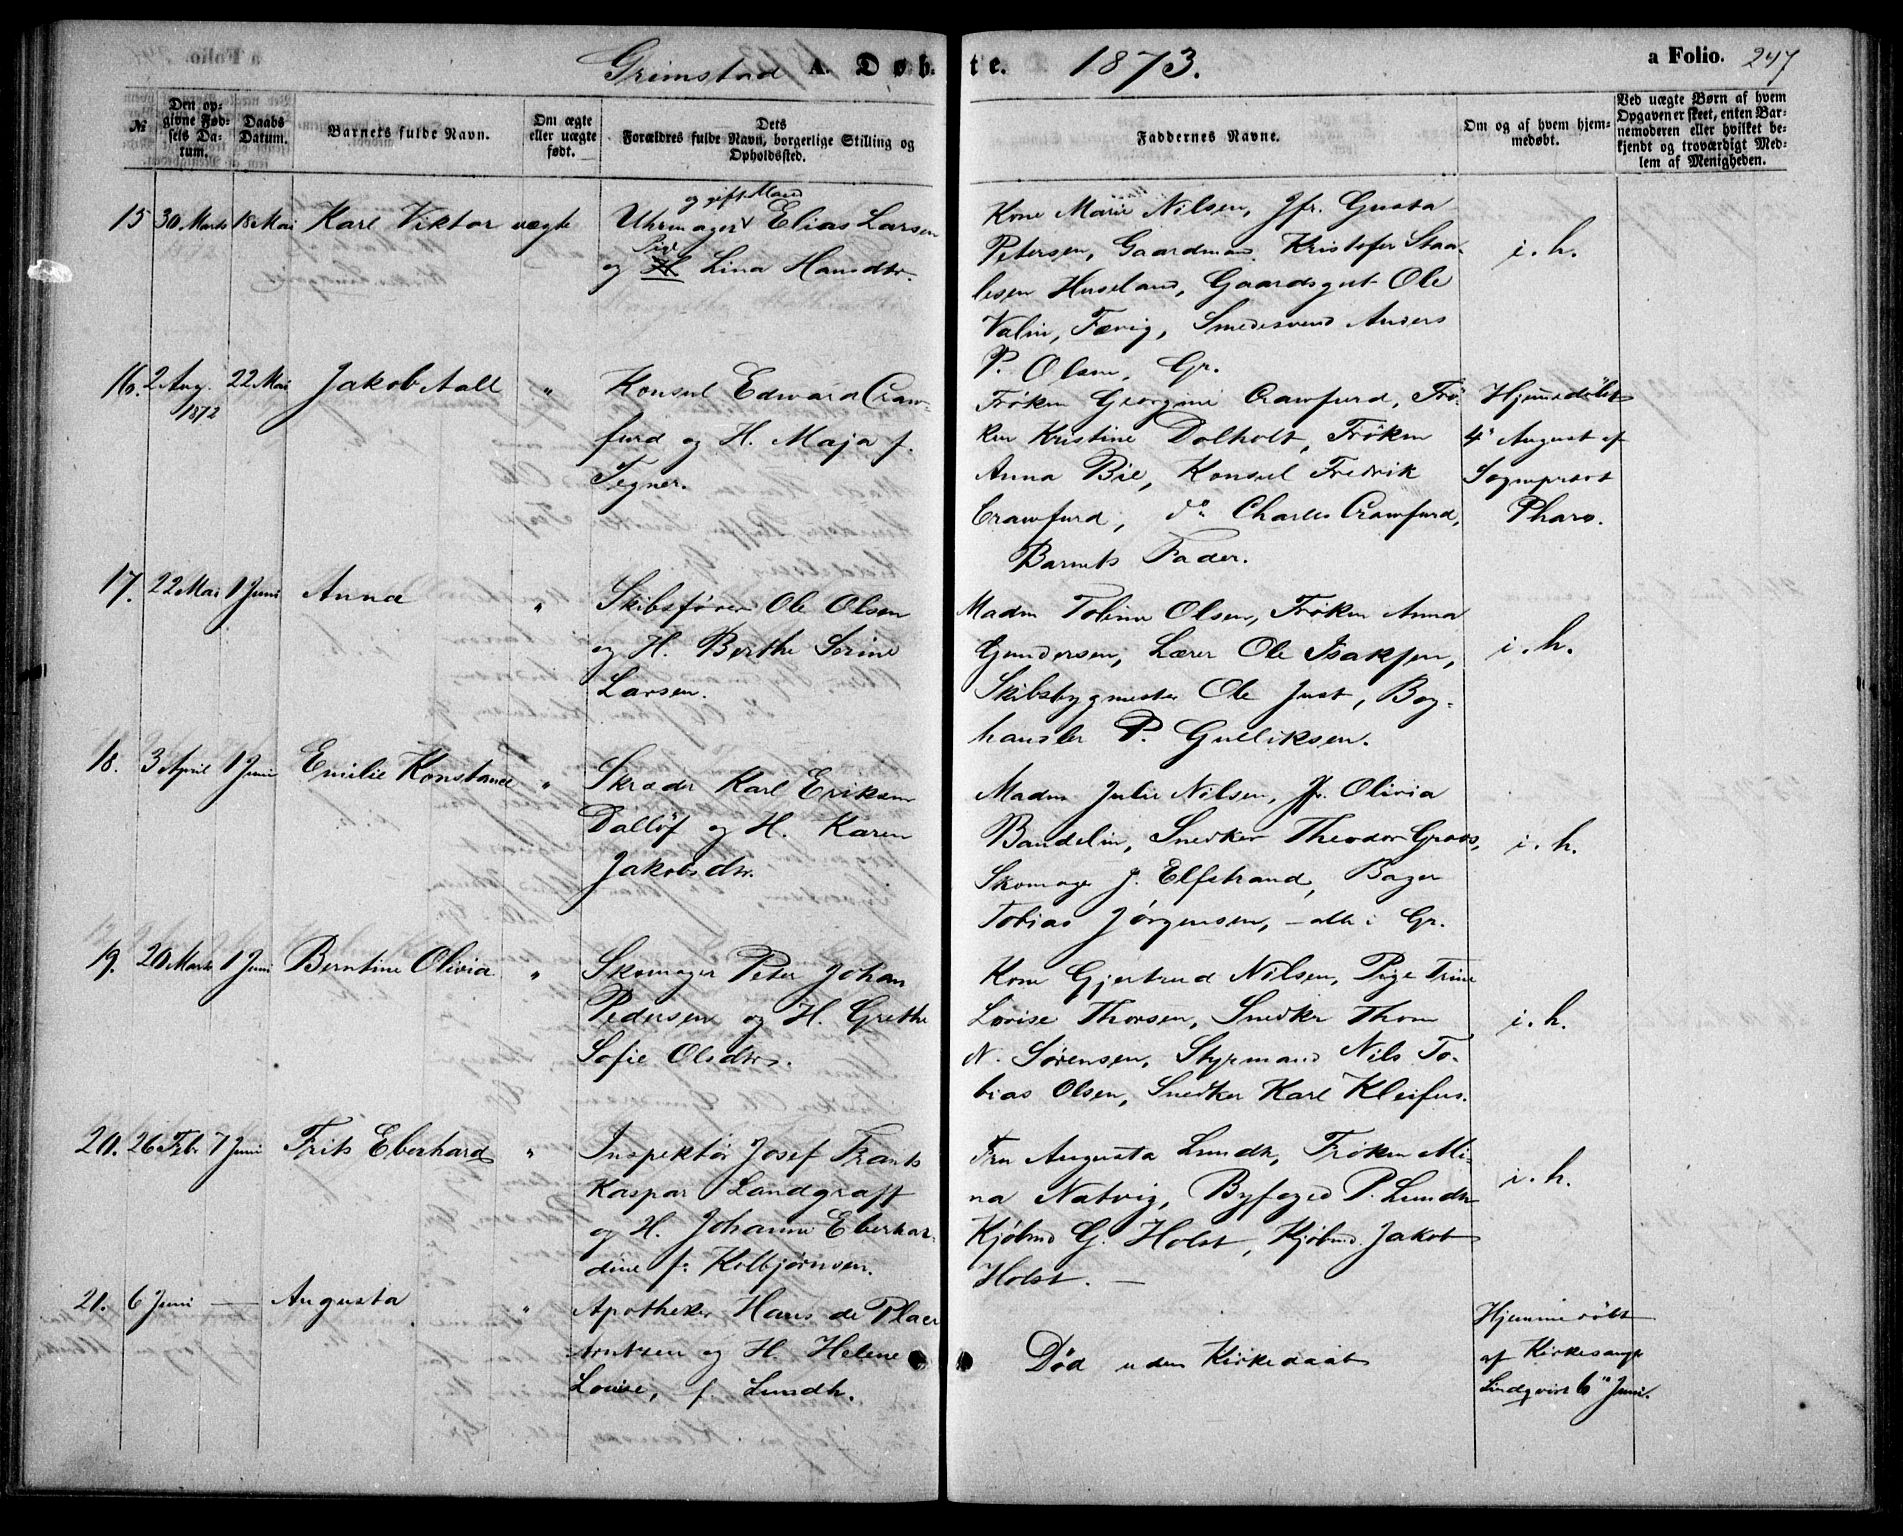 Grimstad A. Døbte. 1873. a Folio. 247
№ Den opgivne Fødsels Datum. Daabs Datum. Barnets fulde Navn. Om ægte eller uægte født. Dets Forældres fulde Navn, borgerlige Stilling og Opholdssted. Faddernes Navne. Om og af hvem hjemmedøbt. Ved uægte Børn af hvem Opgaven er skeet, enten Barnemoderen eller hvilket bekjendt og troværdigt Medlem af Menigheden.
15 30 Marts 18 Mai Karl Viktor uægte
og gift Mand
Uhrmager Elias Larsen
Pige
og H Lina Hansdtr.
Kone Marie Nilsen, Jfr. Gusta
Petersen, Gaardmand Kristofer Staa-
lesen Huseland, Gaardsgut Ole
Valin, Færvig, Smedesvend Anders
P. Olsen, Gr.
i. h.
16. 2 Aug. 1872 22 Mai Jakob Aall "
Konsul Edward Craw-
furd og H. Maja f.
Tegner.
Frøken Georgine Crawfurd, Frø-
ken Kristine Dolholt, Frøken
Anna Bie, Konsul Fredrik
Crawfurd, do Charles Crawfurd,
Barnets Fader.
Hjemmedøbt
4 August af
Sogneprest
Pharo.
17. 22 Mai 1 Juni Anna "
Skibsfører Ole Olsen
og H. Berthe Sørine
Larsen.
Madm Tobine Olsen, Frøken Anna
Gundersen, Lærer Ole Isaksen,
Skibsbygmester Ole Just, Bog-
handler P. Gulliksen.
i. h.
18. 3 April 1 Juni Emilie Konstance "
Skræder Karl Eriksen
Dallöf og H. Karen
Jakobsdtr.
Madm Julie Nilsen, Jfr. Olivia
Bandelin, Snedker Theodor Groos,
Skomager J. Elfstrand, Bager
Tobias Jørgensen, – alle i Gr.
i. h.
19. 20 Marts 1 Juni Berntine Olivia "
Skomager Peter Johan
Pedersen og H. Grethe
Sofie Olsdtr.
Kone Gjertrud Nilsen, Pige Trine
Lovise Thorsen, Snedker Thom
N. Sørensen, Styrmand Nils To-
bias Olsen, Snedker Karl Kleifus.
i. h.
20. 26 Febr 7 Juni Frits Eberhard "
Inspektør Josef Frants
Kaspar Landgraff
og H. Johanne Eberhar-
dine f. Kolbjørnsen.
Fru Augusta Lundh, Frøken Mi-
na Natvig, Byfoged P. Lundh
Kjøbmd G. Holst, Kjøbmd. Jakob
Holst. —
i. h.
21. 6 Juni — Augusta "
Apotheker Hans de Placer
Arntzen og H. Helene
Louise, f. Lundh.
Død uden Kirkedaab
Hjemmedøbt
af Kirkesanger
Lindqvist 6 Juni.